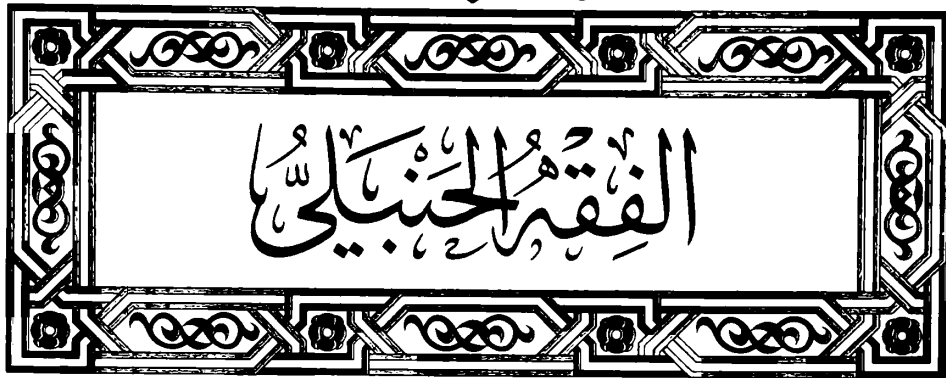 الفِقْهُ الحَنْبَلِيُّ